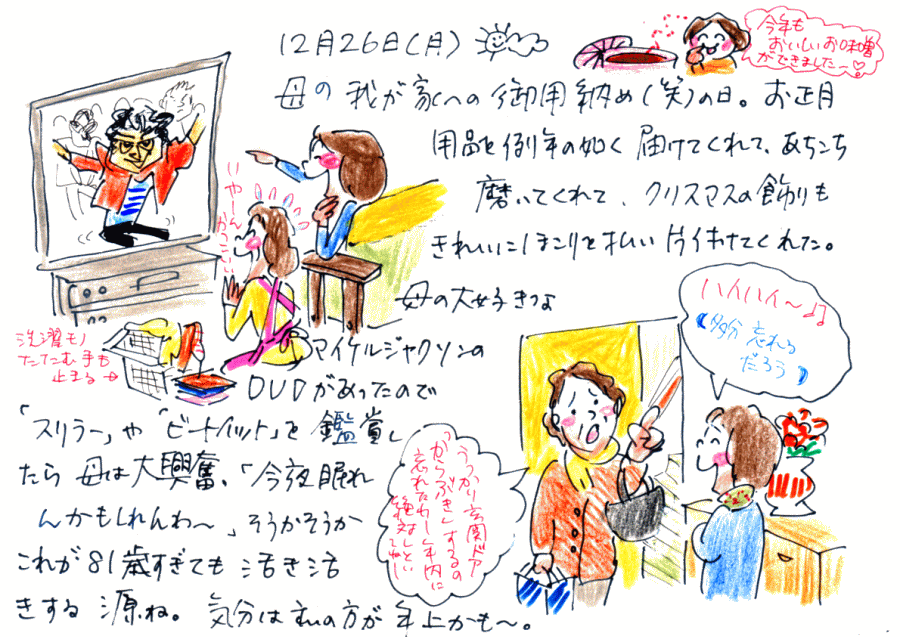 12月26日(月)
今年も
おいしいお味噌
ができました〜♡
母の我が家への御用納め(笑)の日。お正月
用品を例年の如く届けてくれて、あちこち
磨いてくれて、クリスマスの飾りも
きれいにほこりを払い片付けてくれた。
いやーん
かっこいい
母の大好きな
マイケルジャクソンの
DVDがあったので
「スリラー」や「ビートイット」を鑑賞し
たら母は大興奮、「今夜眠れ
んかもしれんわ〜」そうかそうか
これが81歳すぎても活き活
きする源ね。気分は私の方が年上かも〜。
洗濯モノ
たたむ手も
止まる→
ハイハイ〜♫
(多分忘れる
だろう)
うっかり玄関ドア
「からぶき」するの
忘れたわー年内に
絶対しといてね